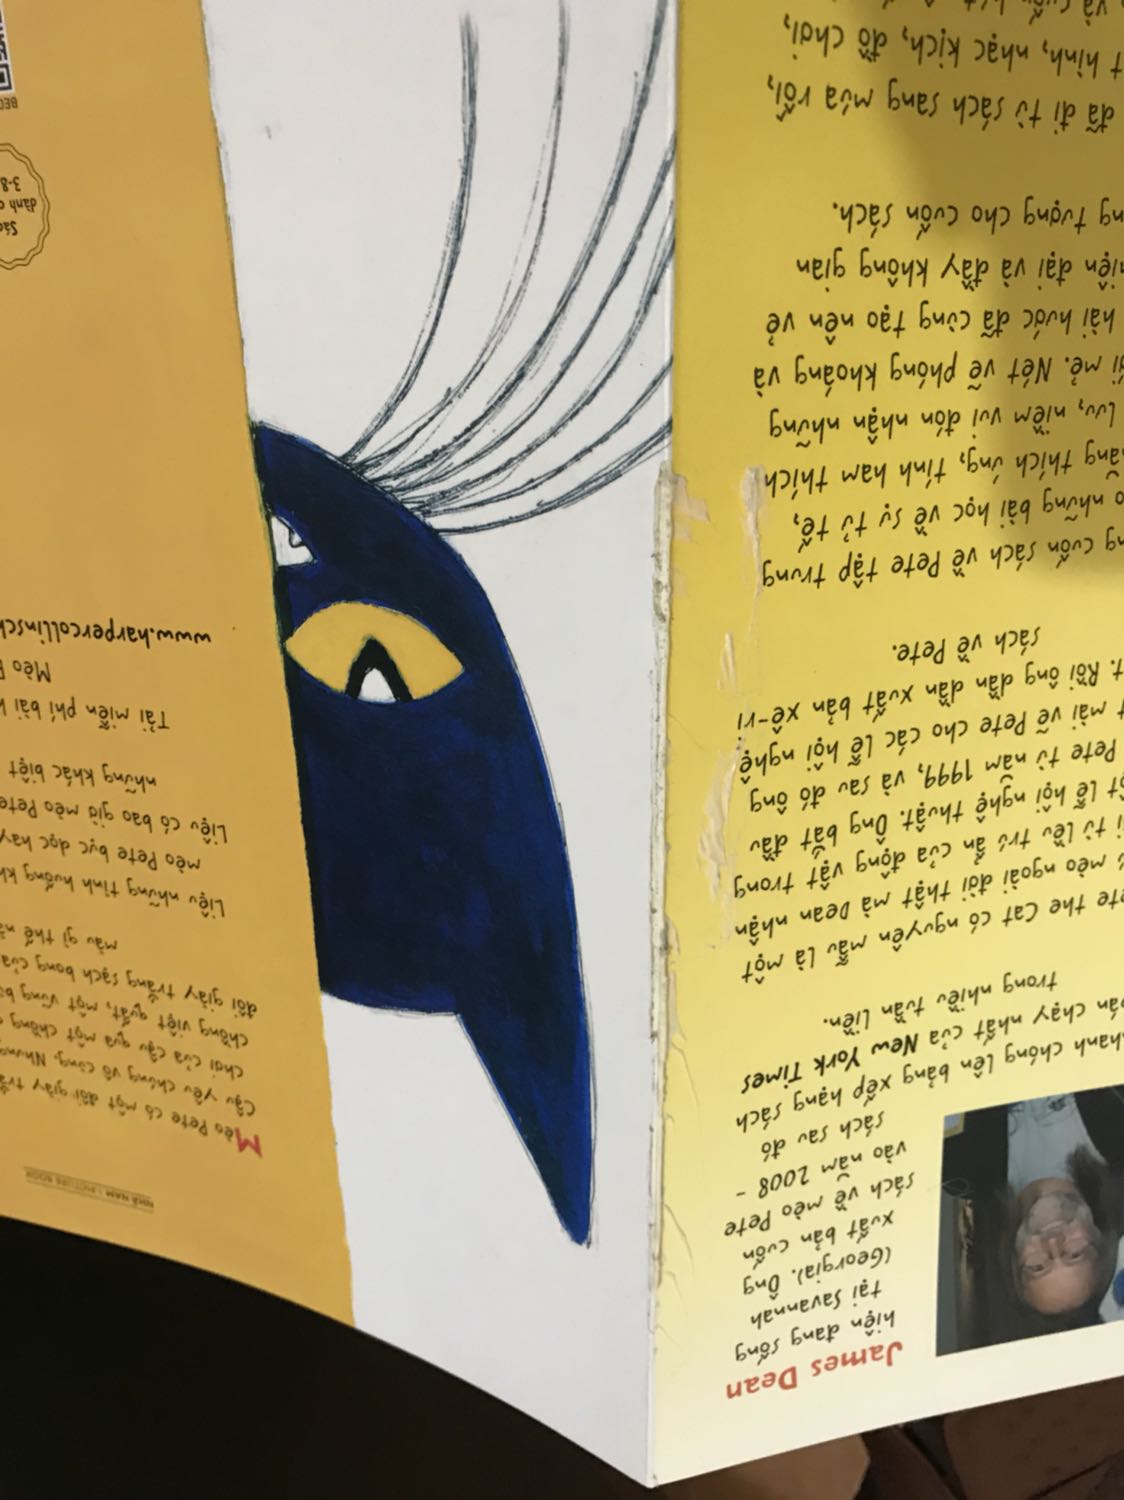 James Dean
hiện đang sống
tại Savannah
(Georgia). Ông
xuất bản cuốn
sách về mèo Pete
vào năm 2008 -
sách sau đó
chóng lên bảng xếp hạng sách
chạy nhất của New York Times
trong nhiều tuần liền.
the Cat có nguyên mẫu là một
mèo ngoài đời thật mà Dean nhận
từ lều trú ẩn của động vật trong
lễ hội nghệ thuật. Ông bắt đầu
Pete từ năm 1999, và sau đó ông
mải vẽ Pete cho các lễ hội nghệ
Rồi ông dần dần xuất bản xê-ri
sách về Pete.
cuốn sách về Pete tập trung
những bài học về sự tử tế,
thích ứng, tính ham thích
lưu, niềm vui đón nhận những
mẻ. Nét vẽ phóng khoáng và
hài hước đã cùng tạo nên vẻ
đại và đầy không gian
tượng cho cuốn sách.
đã đi từ sách sang múa rối,
hình, nhạc kịch, đồ chơi,
NHÃ NAM | PICTURE BOOK
Mèo Pete có một đôi giày
Cậu yêu chúng vô cùng. Nhưng
chơi của cậu qua một chồng
chồng việt quất, một vũng
đôi giày trắng sạch bong của
màu gì thế
Liệu những tình huống
mèo Pete bực dọc hay
Liệu có bao giờ mèo Pete
những khác biệt
Tải miễn phí bài
Mèo
www.harpercollinsch
dành
3-8